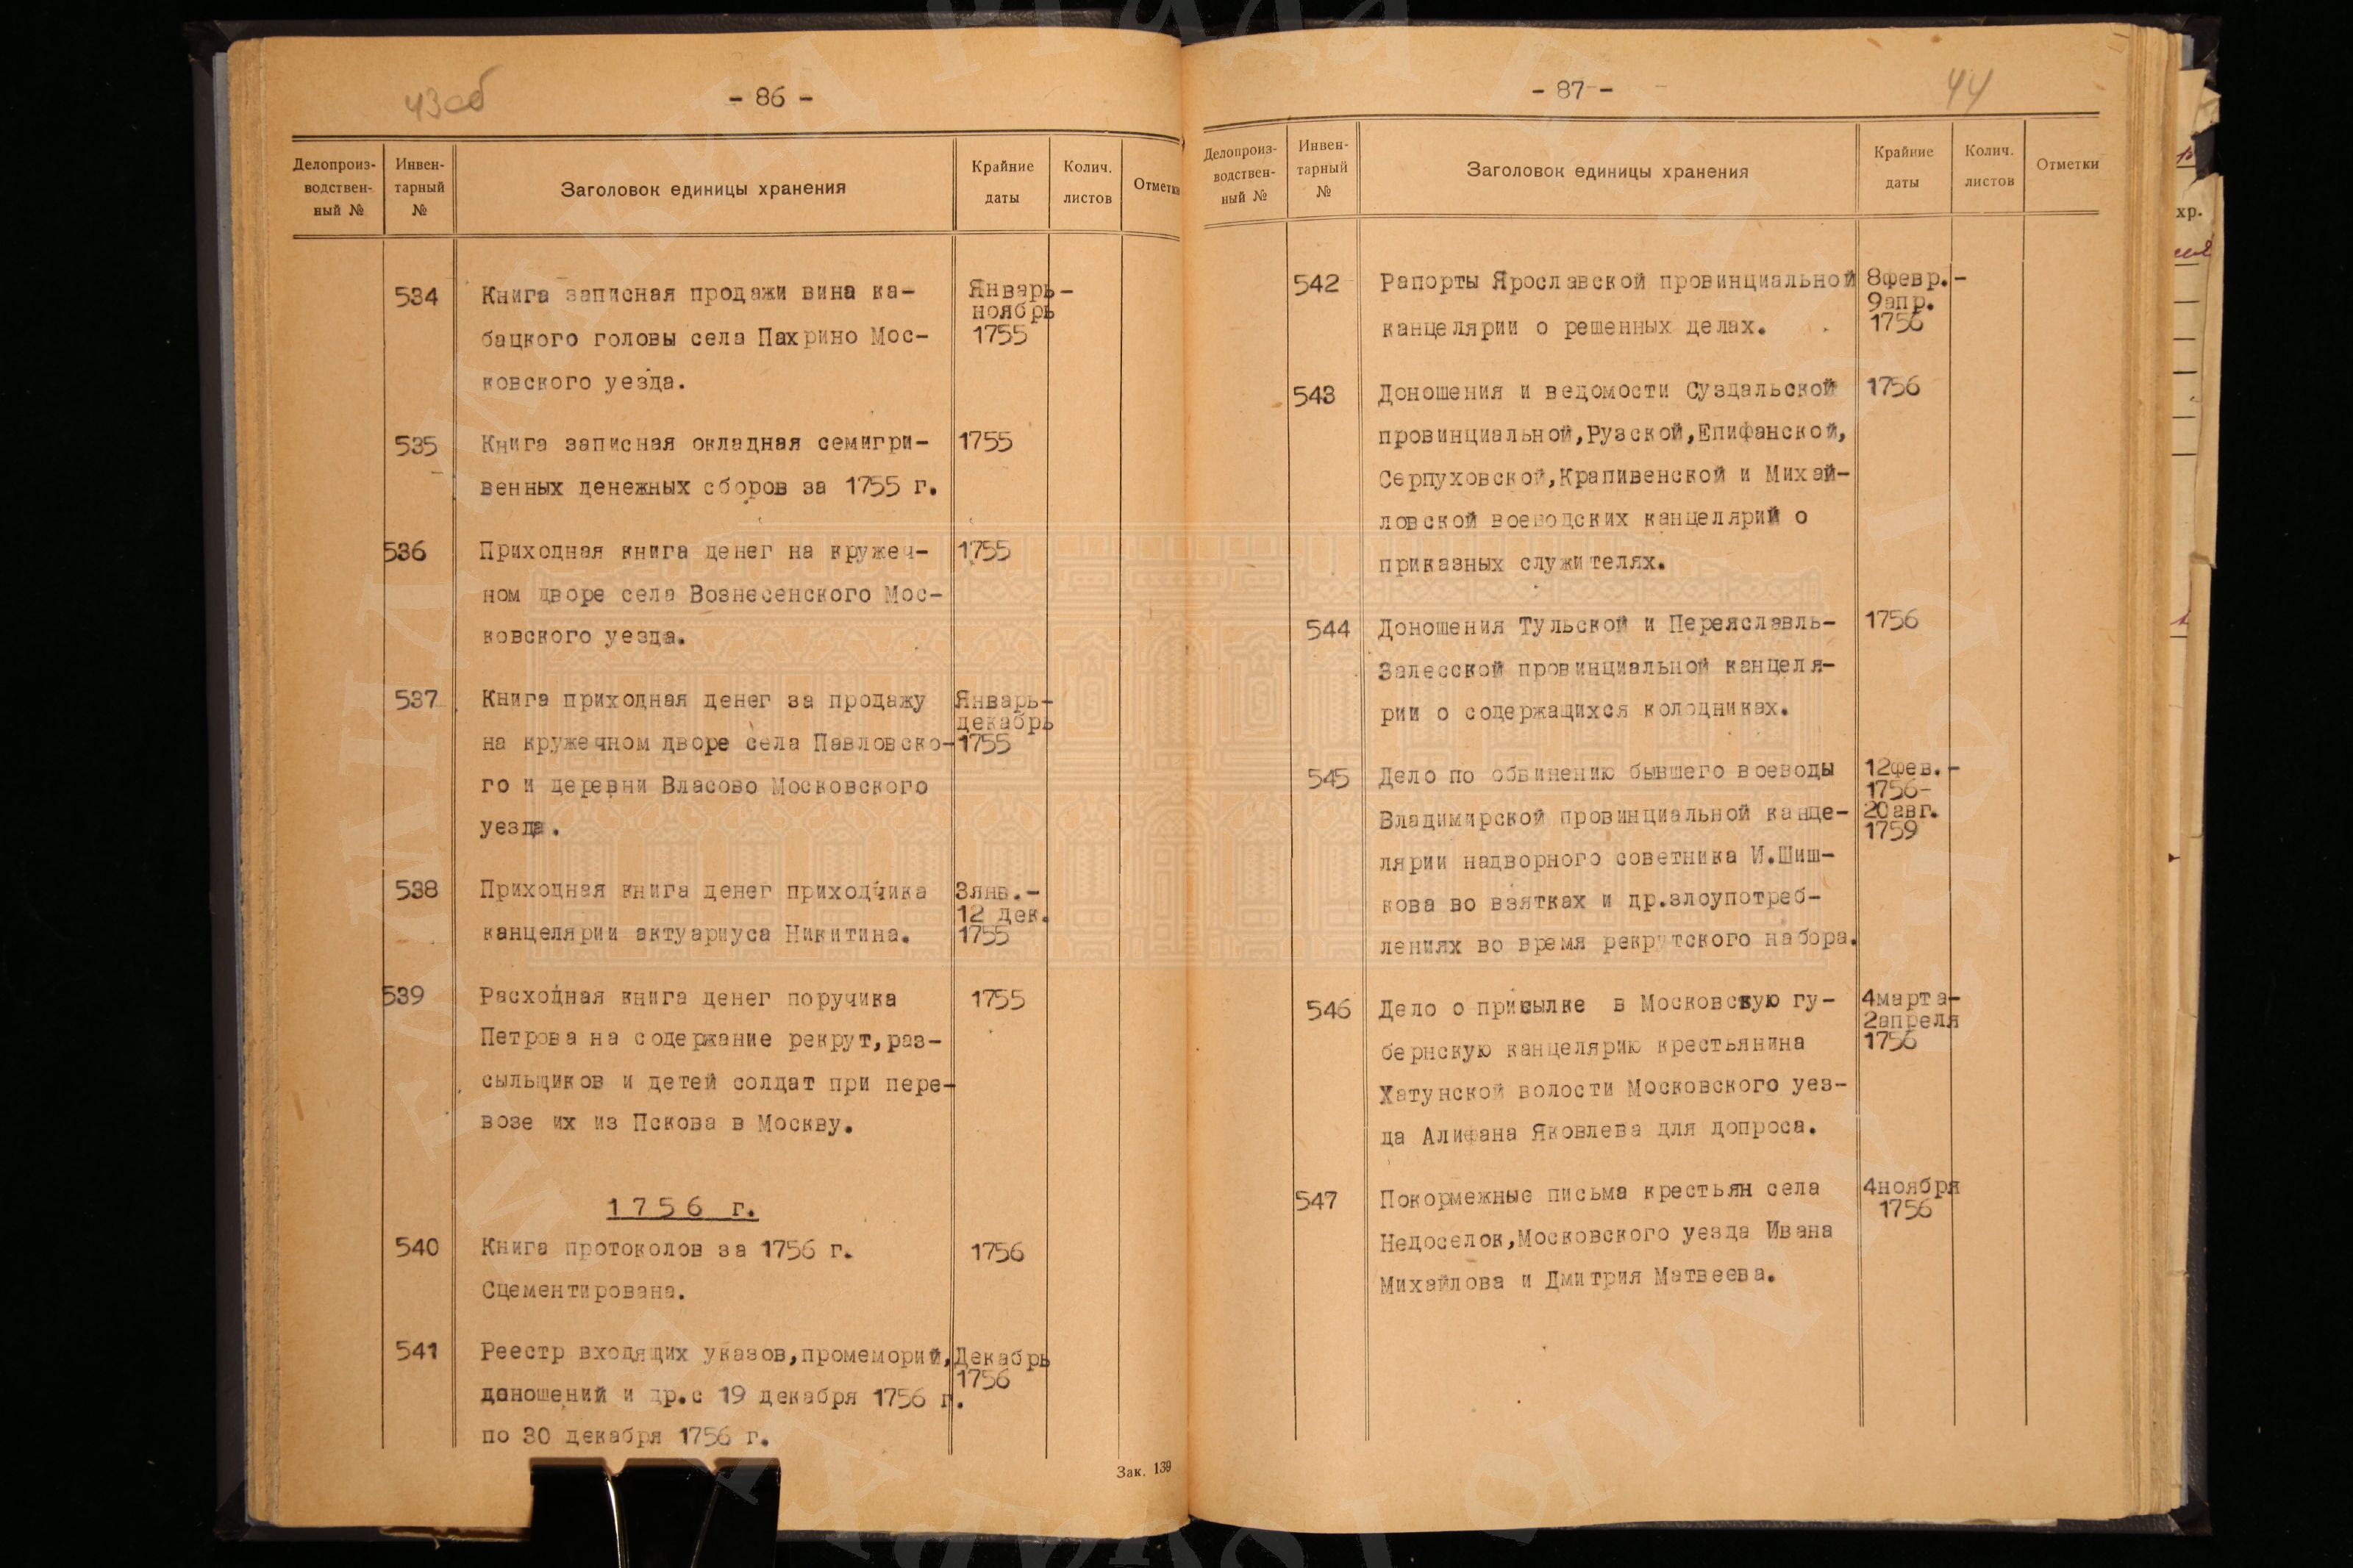 43об
- 86 -
Делопроиз-
водствен-
ный №
Инвен-
тарный
№
Заголовок единицы хранения
Крайние
даты
Колич.
листов
Отметки
534
Книга записная продажи вина ка-
бацкого головы села Пахрино Мос-
ковского уезда.
Январь-
ноябрь
1755
535
Книга записная окладная семигри-
венных денежных сборов за 1755 г.
1755
536
Приходная книга денег на кружеч-
ном дворе села Вознесенского Мос-
ковского уезда.
1755
537
Книга приходная денег за продажу
на кружечном дворе села Павловско-
го и деревни Власово Московского
уезда.
Январь-
декабрь
1755
538
Приходная книга денег приходчика
канцелярии актуариуса Никитина.
3янв.-
12 дек.
1755
539
Расходная книга денег поручика
Петрова на содержание рекрут,раз-
сыльщиков и детей солдат при пере-
возе их из Пскова в Москву.
1755
1756 г.
540
Книга протоколов за 1756 г.
Сцементирована.
1756
541
Реестр входящих указов,промеморий,
доношений и др.с 19 декабря 1756 г.
по 30 декабря 1756 г.
Декабрь
1756
Зак. 139
- 87 -
44
Делопроиз-
водствен-
ный №
Инвен-
тарный
№
Заголовок единицы хранения
Крайние
даты
Колич.
листов
Отметки
542
Рапорты Ярославской провинциальной
канцелярии о решенных делах.
8февр.-
9апр.
1756
543
Доношения и ведомости Суздальской
провинциальной,Рузской,Епифанской,
Серпуховской,Крапивенской и Михай-
ловской воеводских канцелярий о
приказных служителях.
1756
544
Доношения Тульской и Переяславль-
Залесской провинциальной канцеля-
рии о содержащихся колодниках.
1756
545
Дело по обвинению бывшего воеводы
Владимирской провинциальной канце-
лярии надворного советника И.Шиш-
кова во взятках и др.злоупотреб-
лениях во время рекрутского набора.
12фев.-
1756-
20авг.
1759
546
Дело о присылке в Московскую гу-
бернскую канцелярию крестьянина
Хатунской волости Московского уез-
да Алифана Яковлева для допроса.
4марта-
2апреля
1756
547
Покормежные письма крестьян села
Недоселок,Московского уезда Ивана
Михайлова и Дмитрия Матвеева.
4ноября
1756
хр.